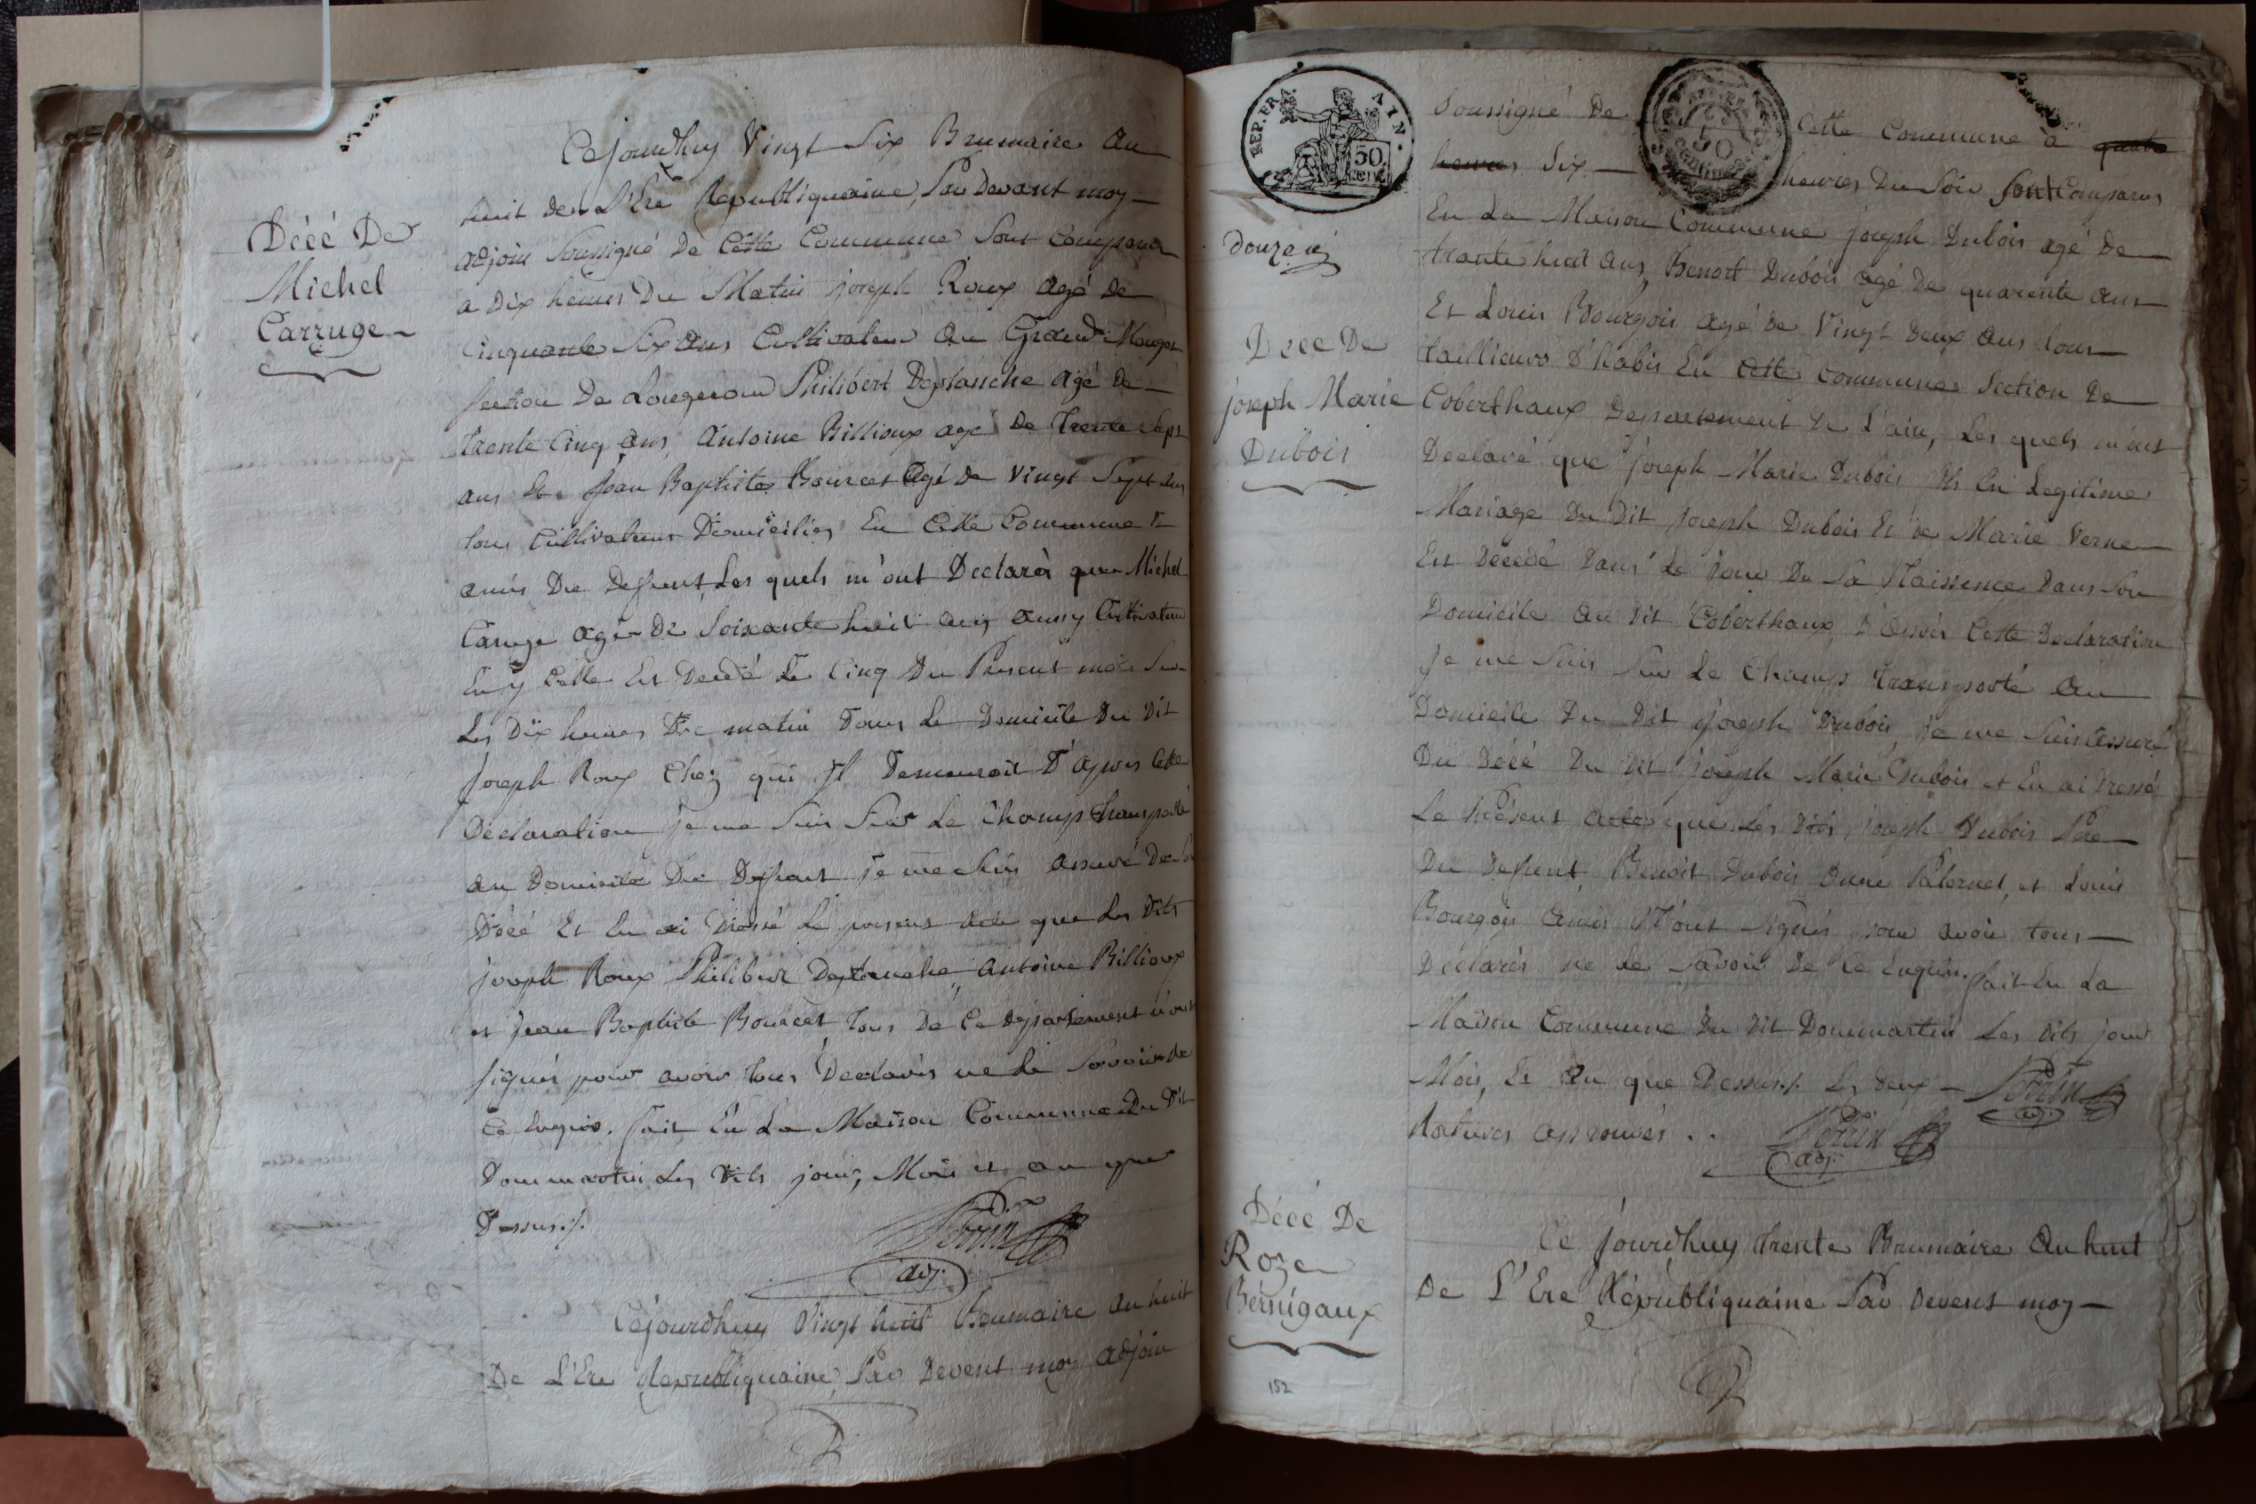 Décé De
Michel
Carruge
Cejourdhuy Vingt Six Brumaire an
huit de L'Ere Republiquaine, Par Devant moy
adjoin Soussigné De Cette Commune Sont Comparus
a Dix heures Du Matin joseph Roux agé de
Cinquante Six ans Cultivateur Au Grand
Section De Philibert Deplanche agé de
trente Cinq ans, Antoine Billioux agé De trente Sept
ans Et Jean Baptiste Bourcet agé de Vingt Sept ans
tous Cultivateurs Domiciliés En Cette Commune &
amis Du Defunt, Les quels m'ont Declarés que Michel
Carruge agé De Soixante huit ans aussy Cultivateur
En y Celle Est Decedé Le Cinq Du Present mois Sur
Les Dix heures Du matin Dans Le Domicile Du Dit
Joseph Roux Chez qui Il Demeuroit D'apres Cette
Declaration je me Suis Sur Le Champs transporté
au Domicile Du Defunt je me Suis assuré De Son
Décé Et En ai Dressé Le present acte que Les Dits
joseph Roux Philibert Deplanche, Antoine Billioux
et jean Baptiste Bourcet tous De Ce Departement n'ont
signés pour avoir tous Declarés ne Le Savoir de
Ce Enquis. fait En La Maison Commune Du Dit
Dommartin Les Dits jour, Mois et an que
Dessus./.
Perrin
adj.
Cejourdhuy Vingt huit Brumaire an huit
De L'Ere Republiquaine, Par Devent moy adjoin
REP. FRA. AIN.
50
CENT.
50
CENTIMES
Soussigné De Cette Commune à quatre
heures Six heures Du Soir Sont Comparus
En La Maison Commune joseph Dubois agé De
trante huit ans, Benoit Dubois agé De quarente ans
Et Louis Bourgois agé de Vingt Deux ans tous
taillieurs D'habis En Cette Commune Section De
Coberthoux Departement De L'ain, Les quels m'ont
Declaré que joseph Marie Dubois fils En Legitime
Mariage Du Dit joseph Dubois Et De Marie Verne
Est Decedé Dans Le jour De Sa Naissence Dans Son
Domicile au Dit Coberthoux D'après Cette Declaration
Je me Suis Sur Le Champs transporté au
Domicile Du Dit joseph Dubois, je me Suis assuré
Du Décé Du Dit joseph Marie Dubois et En ai Dressé
Le Présent acte que Les Dits joseph Dubois Pere
Du Defunt, Benoit Dubois Paternel, et Louis
Bourgois amis N'ont Signés pour avoir tous
Déclarés ne Le Savoir De Ce Enquis. fait En La
Maison Commune Du Dit Dommartin Les Dits jour
Mois, Et an que Dessus./. Les Deux Perrin
adj.
Ratures approuvés.. Perrin
adj.
douze
Decé De
joseph Marie
Dubois
Décé De
Roze
Bernigaux
Ce jourdhuy trente Brumaire an huit
De L'Ere Républiquaine Par Devent moy
152